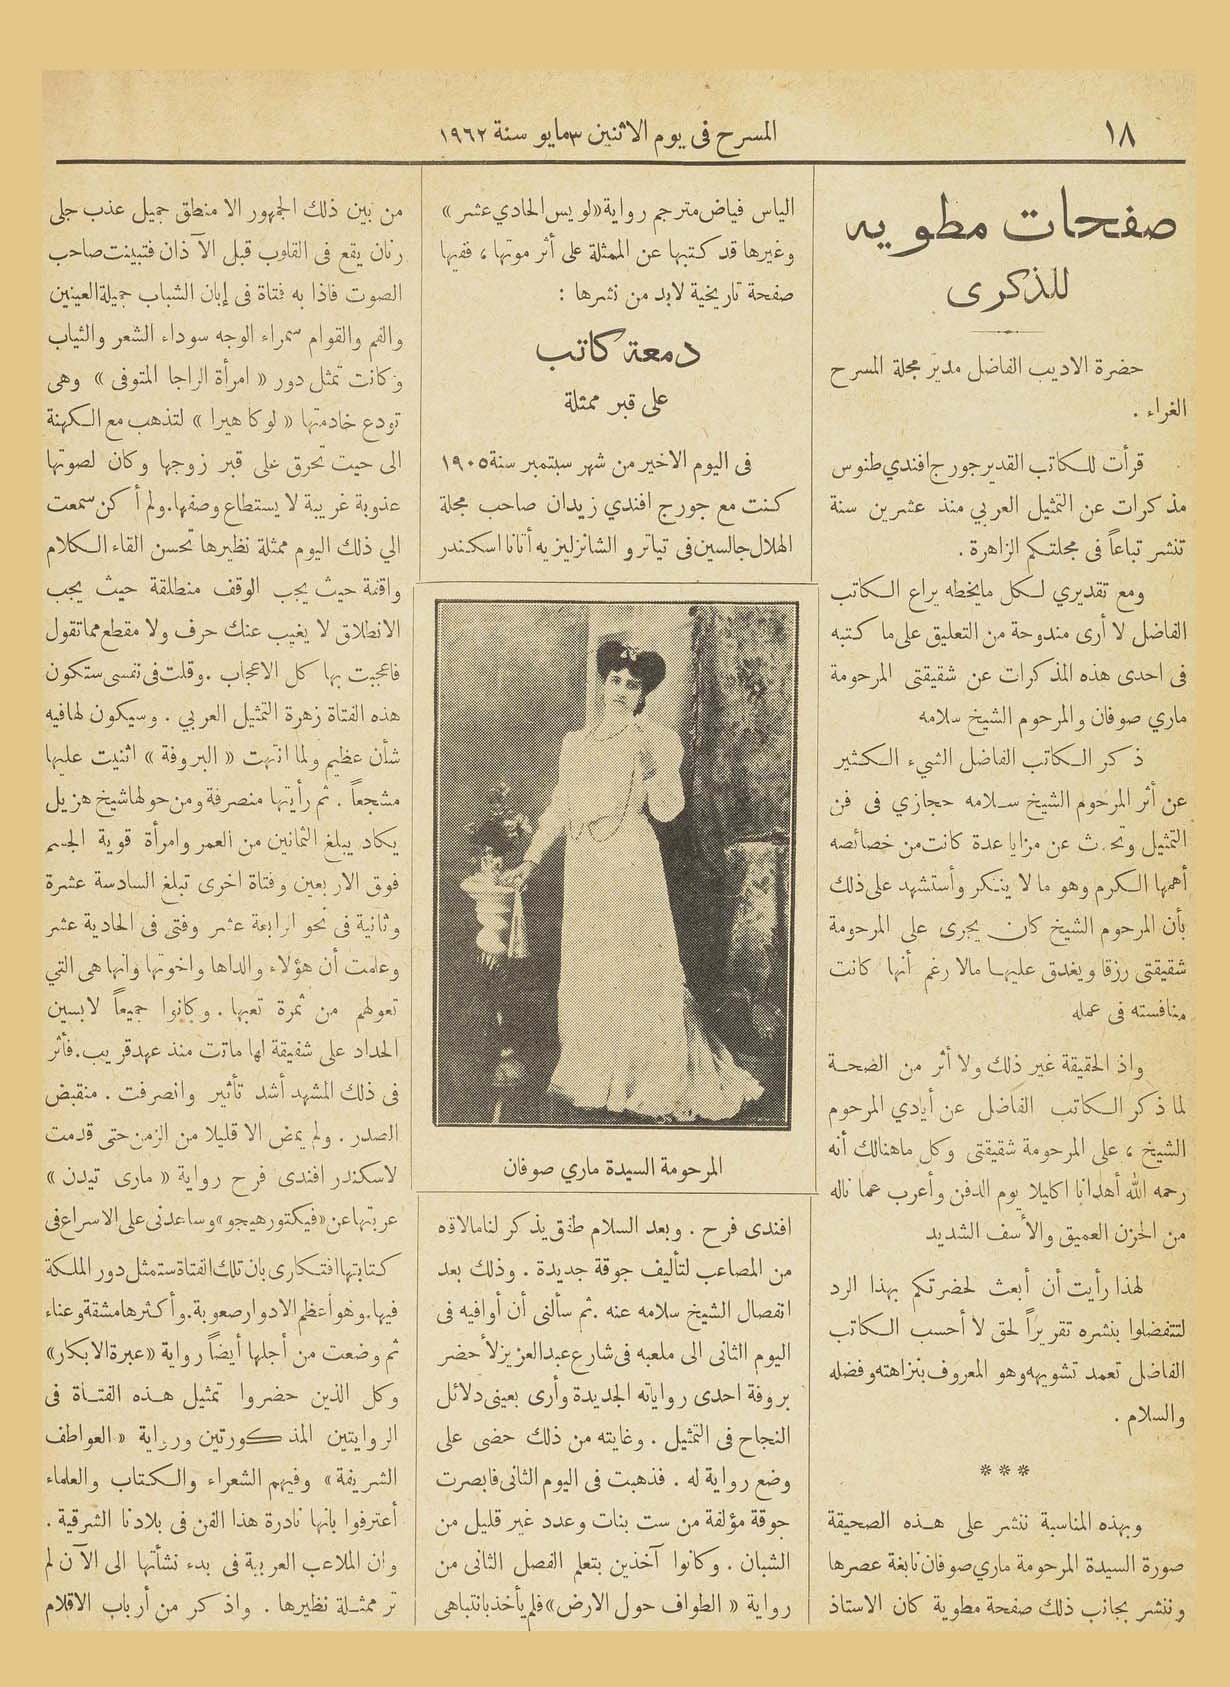 ١٨
المسرح فى يوم الاثنين ٣ مايو سنة ١٩٦٢
صفحات مطويه
للذكرى
حضرة الاديب الفاضل مدير مجلة المسرح
الغراء .
قرأت للكاتب القدير جورج افندي طنوس
مذكرات عن التمثيل العربي منذ عشرين سنة
تنشر تباعاً فى مجلتكم الزاهرة .
ومع تقديري لكل مايخطه يراع الكاتب
الفاضل لا أرى مندوحة من التعليق على ما كتبه
فى احدى هذه المذكرات عن شقيقتى المرحومة
ماري صوفان والمرحوم الشيخ سلامه
ذكر الكاتب الفاضل الشيء الكثير
عن أثر المرحوم الشيخ سلامه حجازي فى فن
التمثيل وتحدث عن مزايا عدة كانت من خصائصه
أهمها الكرم وهو ما لا ينكر وأستشهد على ذلك
بأن المرحوم الشيخ كان يجرى على المرحومة
شقيقتى رزقا ويغدق عليها مالا رغم أنها كانت
منافسته فى عمله
واذ الحقيقة غير ذلك ولا أثر من الصحة
لما ذكر الكاتب الفاضل عن أيادي المرحوم
الشيخ ، على المرحومة شقيقتى وكل ماهنالك أنه
رحمه الله أهدانا اكليلا يوم الدفن وأعرب عما ناله
من الحزن العميق والأسف الشديد
لهذا رأيت أن أبعث لحضرتكم بهذا الرد
لتتفضلوا بنشره تقريراً لحق لا أحسب الكاتب
الفاضل تعمد تشويهه وهو المعروف بنزاهته وفضله
والسلام .
***
وبهذه المناسبة ننشر على هذه الصحيفة
صورة السيدة المرحومة ماري صوفان نابغة عصرها
وننشر بجانب ذلك صفحة مطوية كان الاستاذ
الياس فياض مترجم رواية « لويس الحادي عشر »
وغيرها قد كتبها عن الممثلة على أثر موتها ، ففيها
صفحة تاريخية لابد من نشرها :
دمعة كاتب
على قبر ممثلة
فى اليوم الاخير من شهر سبتمبر سنة ١٩٠٥
كنت مع جورج افندي زيدان صاحب مجلة
الهلال جالسين فى تياترو الشانزليزيه أتانا اسكندر
المرحومة السيدة ماري صوفان
افندى فرح . وبعد السلام طفق يذكر لنا مالاقاه
من المصاعب لتأليف جوقة جديدة . وذلك بعد
انفصال الشيخ سلامه عنه . ثم سألنى أن أوافيه فى
اليوم الثانى الى ملعبه فى شارع عبد العزيز لأحضر
بروفة احدى رواياته الجديدة وأرى بعينى دلائل
النجاح فى التمثيل . وغايته من ذلك حضى على
وضع رواية له . فذهبت فى اليوم الثانى فابصرت
جوقة مؤلفة من ست بنات وعدد غير قليل من
الشبان . وكانوا آخذين بتعلم الفصل الثانى من
رواية « الطواف حول الارض » فلم يأخذ بانتباهى
من بين ذلك الجمهور الا منطق جميل عذب جلى
رنان يقع فى القلوب قبل الآذان فتبينت صاحب
الصوت فاذا به فتاة فى إبان الشباب جميلة العينين
والفم والقوام سمراء الوجه سوداء الشعر والثياب
وكانت تمثل دور « امرأة الراجا المتوفى » وهى
تودع خادمتها « لوكا هيرا » لتذهب مع الكهنة
الى حيث تحرق على قبر زوجها وكان لصوتها
عذوبة غريبة لا يستطاع وصفها . ولم أكن سمعت
الي ذلك اليوم ممثلة نظيرها تحسن القاء الكلام
واقفة حيث يجب الوقف منطلقة حيث يجب
الانطلاق لا يغيب عنك حرف ولا مقطع مما تقول
فاعجبت بها كل الاعجاب . وقلت فى نفسى ستكون
هذه الفتاة زهرة التمثيل العربي . وسيكون لها فيه
شأن عظيم ولما انتهت « البروفة » اثنيت عليها
مشجعاً . ثم رأيتها منصرفة ومن حولها شيخ هزيل
يكاد يبلغ الثمانين من العمر وامرأة قوية الجسم
فوق الاربعين وفتاة اخرى تبلغ السادسة عشرة
وثانية فى نحو الرابعة عشر وفتى فى الحادية عشر
وعلمت أن هؤلاء والداها واخوتها وانها هى التي
تعولهم من ثمرة تعبها . وكانوا جميعاً لابسين
الحداد على شقيقة لها ماتت منذ عهد قريب . فأثر
فى ذلك المشهد أشد تأثير وانصرفت . منقبض
الصدر . ولم يمض الا قليلا من الزمن حتى قدمت
لاسكندر افندى فرح رواية « مارى تيدن »
عربتها عن « فيكتور هيجو » وساعدنى على الاسراع فى
كتابتها افتكارى بان تلك الفتاة ستمثل دور الملكة
فيها . وهو أعظم الادوار صعوبة . وأكثرها مشقة وعناء
ثم وضعت من أجلها أيضاً رواية « عبرة الابكار »
وكل الذين حضروا تمثيل هذه الفتاة فى
الروايتين المذكورتين ورواية « العواطف
الشريفة » وفيهم الشعراء والكتاب والعلماء
أعترفوا بانها نادرة هذا الفن فى بلادنا الشرقية .
وان الملاعب العربية فى بدء نشأتها الى الآن لم
تر ممثلة نظيرها . واذكر من أرباب الاقلام